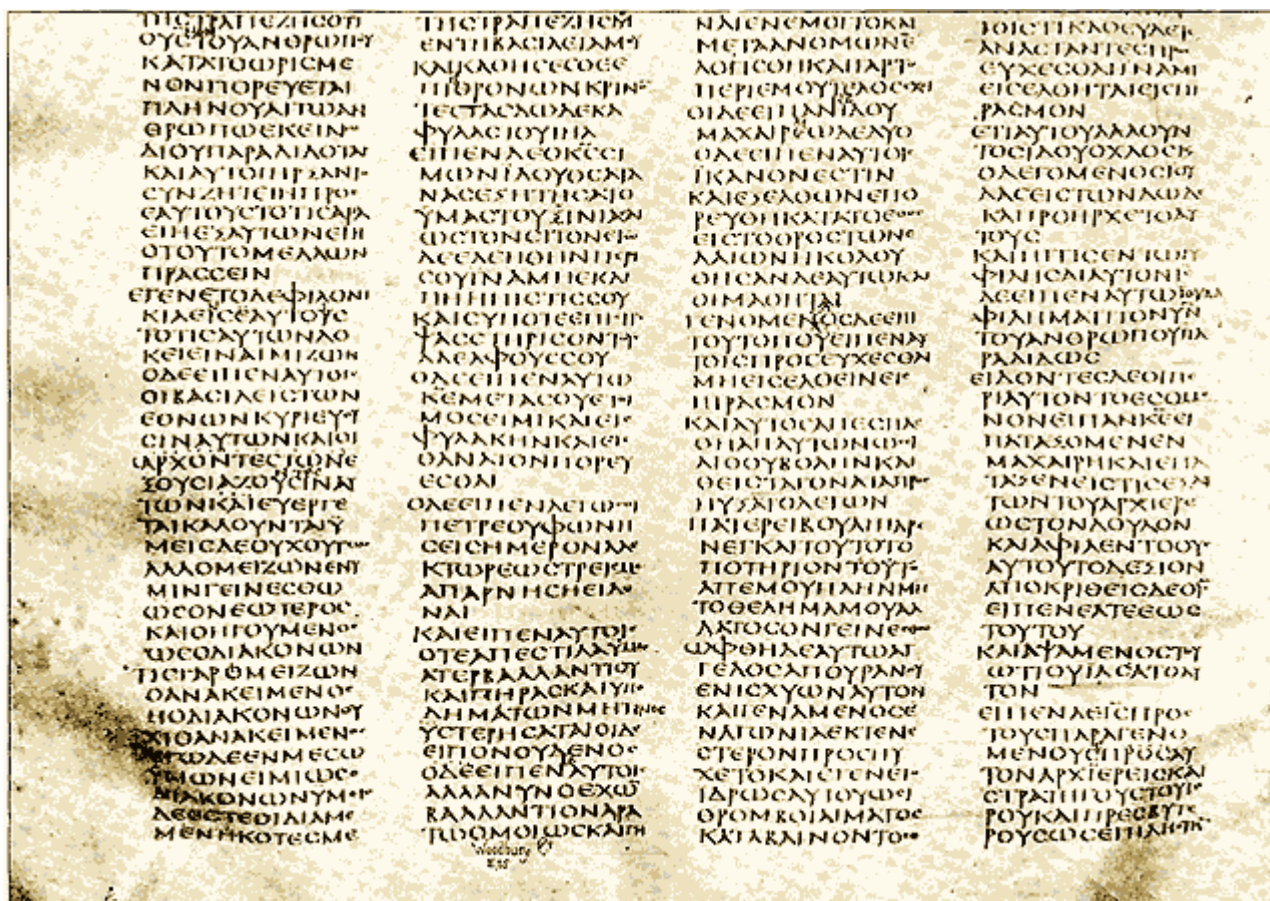 ΤΗCΤΡΑΠΕΖΗCΟΤΙ
ΟΥCΤΟΥΑΝΘΡΩΠΟΥ
ΚΑΤΑΤΟΩΡΙCΜΕ
ΝΟΝΠΟΡΕΥΕΤΑΙ
ΠΛΗΝΟΥΑΙΤΩΑΝ
ΘΡΩΠΩΕΚΕΙΝΩ
ΔΙΟΥΠΑΡΑΔΙΔΟΤΑΙ
ΚΑΙΑΥΤΟΙΗΡΞΑΝΤ
CΥΝΖΗΤΕΙΝΠΡΟC
ΕΑΥΤΟΥCΤΟΤΙCΑΡΑ
ΕΙΗΕΞΑΥΤΩΝΕΙΗ
ΟΤΟΥΤΟΜΕΛΛΩΝ
ΠΡΑCCΕΙΝ
ΕΓΕΝΕΤΟΔΕΦΙΛΟΝΙ
ΚΙΑΕΙCΕΑΥΤΟΥC
ΤΟΤΙCΑΥΤΩΝΔΟ
ΚΕΙΕΙΝΑΙΜΙΖΩΝ
ΟΔΕΕΙΠΕΝΑΥΤΟΙC
ΟΙΒΑCΙΛΕΙCΤΩΝ
ΕΘΝΩΝΚΥΡΙΕΥΟΥ
CΙΝΑΥΤΩΝΚΑΙΟΙ
ΑΡΧΟΝΤΕCΤΩΝΕ
ΞΟΥCΙΑΖΟΥCΙΝΑΥ
ΤΩΝΚΑΙΕΥΕΡΓΕ
ΤΑΙΚΑΛΟΥΝΤΑΙΫ
ΜΕΙCΔΕΟΥΧΟΥΤΩC
ΑΛΛΟΜΕΙΖΩΝΕΝΥ
ΜΙΝΓΕΙΝΕCΘΩ
ΩCΟΝΕΩΤΕΡΟC
ΚΑΙΟΗΓΟΥΜΕΝΟC
ΩCΟΔΙΑΚΟΝΩΝ
ΤΙCΓΑΡΟΜΕΙΖΩΝ
ΟΑΝΑΚΕΙΜΕΝΟC
ΗΟΔΙΑΚΟΝΩΝΟΥ
ΧΙΟΑΝΑΚΕΙΜΕΝΟC
ΕΓΩΔΕΕΝΜΕCΩ
ΥΜΩΝΕΙΜΙΩCΟ
ΔΙΑΚΟΝΩΝΥΜΕΙC
ΔΕΕCΤΕΟΙΔΙΑΜΕ
ΜΕΝΗΚΟΤΕCΜΕ
ΤΗCΤΡΑΠΕΖΗCΜ
ΕΝΤΗΒΑCΙΛΕΙΑΜΟΥ
ΚΑΙΚΑΘΗCΕCΘΕΕ
ΠΙΘΡΟΝΩΝΚΡΙΝΟΝ
ΤΕCΤΑCΔΩΔΕΚΑ
ΦΥΛΑCΤΟΥΙΗΛ
ΕΙΠΕΝΔΕΟΚCCΙ
ΜΩΝΙΔΟΥΟCΑΤΑ
ΝΑCΕΞΗΤΗCΑΤΟ
ΫΜΑCΤΟΥCΙΝΙΑCΑΙ
ΩCΤΟΝCΙΤΟΝΕΓΩ
ΔΕΕΔΕΗΘΗΝΠΕΡΙ
CΟΥΙΝΑΜΗΕΚΛΙ
ΠΗΗΠΙCΤΙCCΟΥ
ΚΑΙCΥΠΟΤΕΕΠΙCΤΡΕ
ΨΑCCΤΗΡΙCΟΝΤΟΥC
ΑΔΕΛΦΟΥCCΟΥ
ΟΔΕΕΙΠΕΝΑΥΤΩ
ΚΕΜΕΤΑCΟΥΕΤΟΙ
ΜΟCΕΙΜΙΚΑΙΕΙC
ΦΥΛΑΚΗΝΚΑΙΕΙC
ΘΑΝΑΤΟΝΠΟΡΕΥ
ΕCΘΑΙ
ΟΔΕΕΙΠΕΝΛΕΓΩCΟΙ
ΠΕΤΡΕΟΥΦΩΝΗ
CΕΙCΗΜΕΡΟΝΑΛΕ
ΚΤΩΡΕΩCΤΡΕΙCΜΕ
ΑΠΑΡΝΗCΗΕΙΔΕ
ΝΑΙ
ΚΑΙΕΙΠΕΝΑΥΤΟΙC
ΟΤΕΑΠΕCΤΙΛΑΥΜΑC
ΑΤΕΡΒΑΛΛΑΝΤΙΟΥ
ΚΑΙΠΗΡΑCΚΑΙΥΠΟ
ΔΗΜΑΤΩΝΜΗΤΙΝΟC
ΥCΤΕΡΗCΑΤΑΙΟΙΔΕ
ΕΙΠΟΝΟΥΔΕΝΟC
ΟΔΕΕΙΠΕΝΑΥΤΟΙC
ΑΛΛΑΝΥΝΟΕΧΩ
ΒΑΛΛΑΝΤΙΟΝΑΡΑ
ΤΩΟΜΟΙΩCΚΑΙΠΗ
Woodbury
ΝΑΙΕΝΕΜΟΙΤΟΚΑΙ
ΜΕΤΑΑΝΟΜΩΝΕ
ΛΟΓΙCΘΗΚΑΙΓΑΡΤΟ
ΠΕΡΙΕΜΟΥΤΕΛΟCΕΧΙ
ΟΙΔΕΕΙΠΑΝΙΔΟΥ
ΜΑΧΑΙΡΕΩΔΕΔΥΟ
ΟΔΕΕΙΠΕΝΑΥΤΟΙC
ΪΚΑΝΟΝΕCΤΙΝ
ΚΑΙΕΞΕΛΘΩΝΕΠΟ
ΡΕΥΘΗΚΑΤΑΤΟΕΘΟC
ΕΙCΤΟΟΡΟCΤΩΝΕ
ΛΑΙΩΝΗΚΟΛΟΥ
ΘΗCΑΝΔΕΑΥΤΩΚΑΙ
ΟΙΜΑΘΗΤΑΙ
ΓΕΝΟΜΕΝΟCΔΕΕΠΙ
ΤΟΥΤΟΠΟΥΕΙΠΕΝΑΥ
ΤΟΙCΠΡΟCΕΥΧΕCΘΑΙ
ΜΗΕΙCΕΛΘΕΙΝΕΙC
ΠΙΡΑCΜΟΝ
ΚΑΙΑΥΤΟCΑΠΕCΠΑ
CΘΗΑΠΑΥΤΩΝΩCΙ
ΛΙΘΟΥΒΟΛΗΝΚΑΙ
ΘΕΙCΤΑΓΟΝΑΤΑΠΡΟC
ΗΥΞΑΤΟΛΕΓΩΝ
ΠΑΤΕΡΕΙΒΟΥΛΙΠΑΡΕ
ΝΕΓΚΑΙΤΟΥΤΟΤΟ
ΠΟΤΗΡΙΟΝΤΟΥΤΟ
ΑΠΕΜΟΥΠΛΗΝΜΗ
ΤΟΘΕΛΗΜΑΜΟΥΑΛ
ΛΑΤΟCΟΝΓΕΙΝΕCΘΩ
ΩΦΘΗΔΕΑΥΤΩΑΓ
ΓΕΛΟCΑΠΟΥΡΑΝΟΥ
ΕΝΙCΧΥΩΝΑΥΤΟΝ
ΚΑΙΓΕΝΑΜΕΝΟCΕ
ΝΑΓΩΝΙΑΕΚΤΕΝΕ
CΤΕΡΟΝΠΡΟCΗΥ
ΧΕΤΟΚΑΙΕΓΕΝΕΤΟ
ΪΔΡΩCΑΥΤΟΥΩCΙ
ΘΡΟΜΒΟΙΑΙΜΑΤΟC
ΚΑΤΑΒΑΙΝΟΝΤΟC
ΑΝΑCΤΑΝΤΕCΠΡΟC
ΕΥΧΕCΘΑΙΙΝΑΜΗ
ΕΙCΕΛΘΗΤΑΙΕΙCΠΙ
ΡΑCΜΟΝ
ΕΤΙΑΥΤΟΥΛΑΛΟΥΝ
ΤΟCΙΔΟΥΟΧΛΟCΚ
ΟΛΕΓΟΜΕΝΟCΙΟΥ
ΔΑCΕΙCΤΩΝΔΩΔΕ
ΚΑΙΠΡΟΗΡΧΕΤΟΑΥ
ΤΟΥC
ΚΑΙΗΓΓΙCΕΝΤΩΙΥ
ΦΙΛΗCΑΙΑΥΤΟΝΙC
ΔΕΕΙΠΕΝΑΥΤΩΙΟΥΔΑ
ΦΙΛΗΜΑΤΙΤΟΝΥΝ
ΤΟΥΑΝΘΡΩΠΟΥΠΑ
ΡΑΔΙΔΩC
ΕΙΔΟΝΤΕCΔΕΟΙΠΕ
ΡΙΑΥΤΟΝΤΟΕCΟΜΕ
ΝΟΝΕΙΠΑΝΚΕΕΙ
ΠΑΤΑΞΟΜΕΝΕΝ
ΜΑΧΑΙΡΗΚΑΙΕΠΑ
ΤΑΞΕΝΕΙCΤΙCΕΞΑΥ
ΤΩΝΤΟΥΑΡΧΙΕΡΕ
ΩCΤΟΝΔΟΥΛΟΝ
ΚΑΙΑΦΙΛΕΝΤΟΟΥC
ΑΥΤΟΥΤΟΔΕΞΙΟΝ
ΑΠΟΚΡΙΘΕΙCΔΕΟΙC
ΕΙΠΕΝΕΑΤΕΕΩC
ΤΟΥΤΟΥ
ΚΑΙΑΨΑΜΕΝΟCΤΟΥ
ΩΤΙΟΥΙΑCΑΤΟΑΥ
ΤΟΝ
ΕΙΠΕΝΔΕΙCΠΡΟC
ΤΟΥCΠΑΡΑΓΕΝΟ
ΜΕΝΟΥCΠΡΟCΑΥ
ΤΟΝΑΡΧΙΕΡΕΙCΚΑΙ
CΤΡΑΤΗΓΟΥCΤΟΥΙΕ
ΡΟΥΚΑΙΠΡΕCΒΥΤΕ
ΡΟΥCΩCΕΠΙΛΗCΤΗ